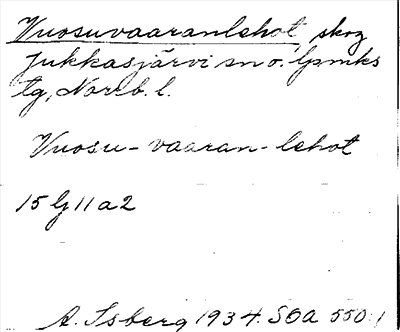 Vuosuvaaranlehot, skog
Jukkasjärvi sn o. lpmks
tg, Norrb. l.
Vuosu-vaaran-lehot
15 G 11 a 2
A. Isberg 1934. SOA 550:1